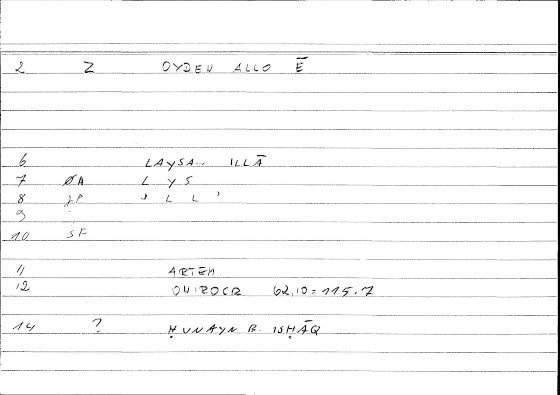 2 Z OYDEN ALLO Ē
6 LAYSA... ILLĀ
7 ØA L Y S
8 JP ʾ L L ʾ
9
10 SF
11 ARTEM
12 ONIROCR 62,10 = 115.7
14 ? ḤUNAYN B. ISḤĀQ